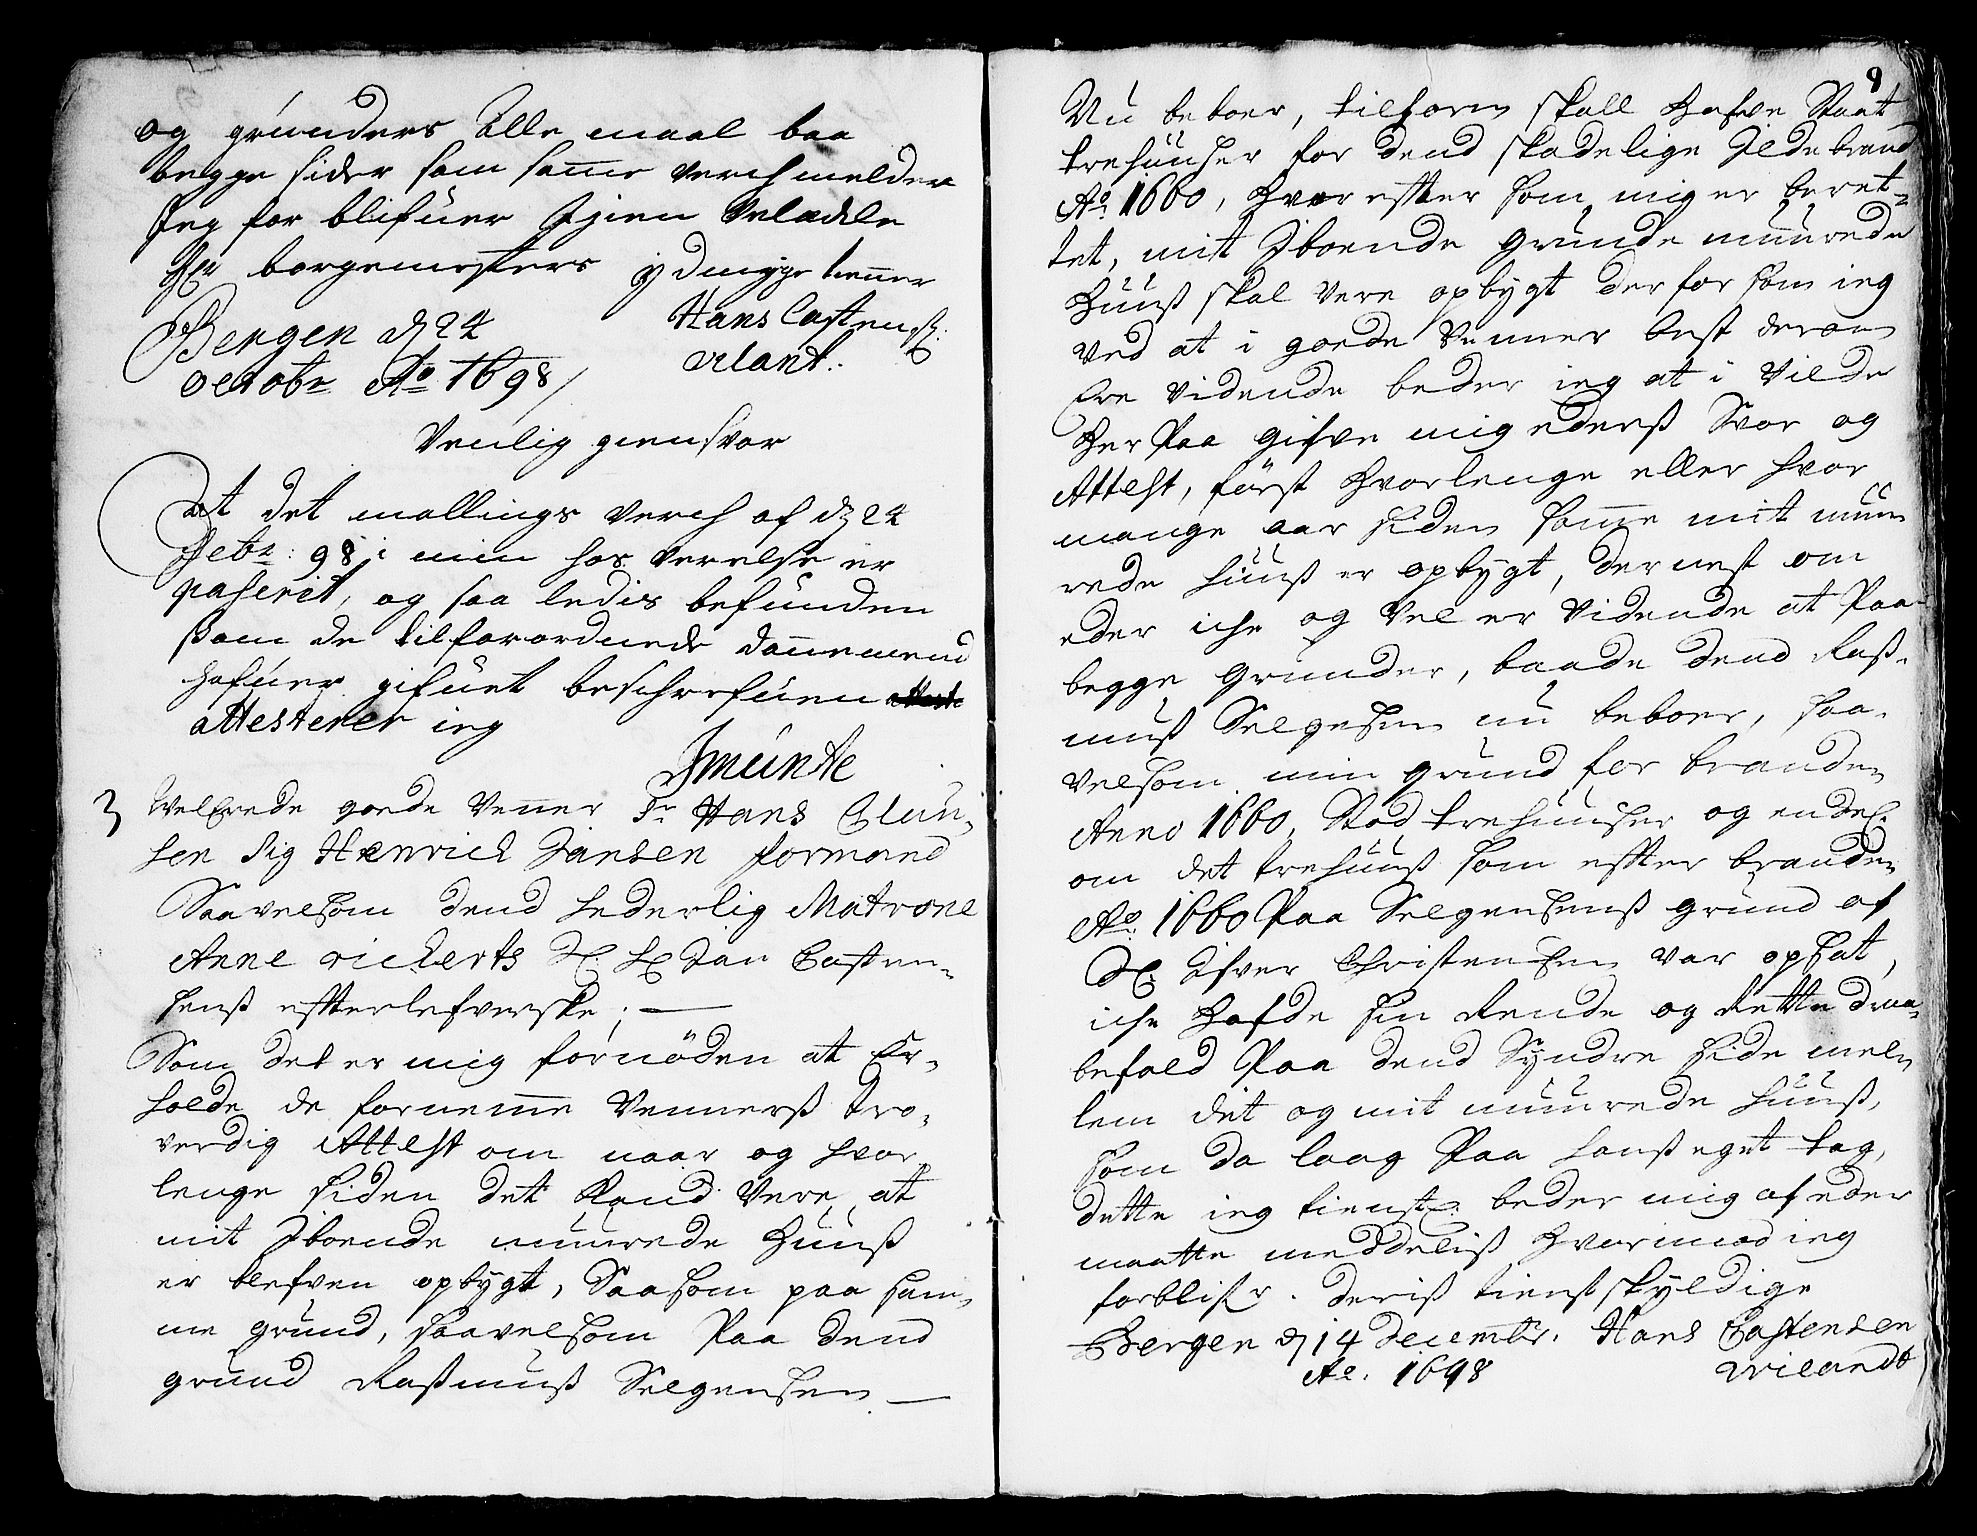 og grunders Alle maal baa
begge sider som samme verch melder
Jeg for blifuer Igien Veladle
Hr borgemesters ydmyge tiener
Bergen d 24 Hans Castens:
octobr Ao 1698 / vilant.
Venlig giensvar
At det mallings verch af d 24
Febr: 98 i min hos verelse er
paserit, og saa ledis befunden
som de tilforordnede dannemend
hafuer gifuet beschrefuen
attesterer ieg
JMunte
3 WelErede goede Venner Sr Hans Clau-
sen Sig Henrich Jansen formand
Saavelsom dend hederlig Matrone
Anne rickerts Sl: Hr Jan Casten-
senß efterlefverske; —
Som det er mig fornöden at Er-
holde de fornemme Vennerß tro-
verdig Attest om naar og hvor
lenge siden det Kand Vere, at
mit Iboende muurede Huuß
er blefven opbygt, Saasom paa sam-
me grund, saavelsom Paa dend
grund Raßmuß Helgensen —
9
Nu beboer, tilforn skall Hafve Staat
trehuuser for dend skadelige Ildebrand
Ao 1660, Hvor efter som mig er beret-
tet, mit Iboende grunde muurede
Huuß skal Vere opbygt derfor som ieg
Ved at i goede Venner best derom
Ere vidende beder ieg at i Vilde
Her Paa gifve mig ederß Svar og
Attest, först Hvorlenge eller hvor
mange aar siden samme mit muu-
rede huuß er opbygt, dernest om
eder iche og Vel er Vidende at Paa
begge grunder, baade dend Raß-
muß Helgesen nu beboer, saa-
velsom min grund for branden
Anno 1660, Stod trehuuser og endel:
om det trehuuß som efter branden
Ao: 1660 Paa Helgensenß grund af
Sl: Ifver Christensen var opsat,
iche Hafde sin Rende og Rette draa-
befald Paa dend Syndre side mel-
lem det og mit muurede huuß,
som da laag Paa hanß eget tag,
dette ieg tienstl: beder mig af eder
maatte meddeliß Hvormod ieg
forblifr. deriß tienstskyldige
Bergen d 14 decembr. Hans Castensen
Ao. 1698 Wilandt